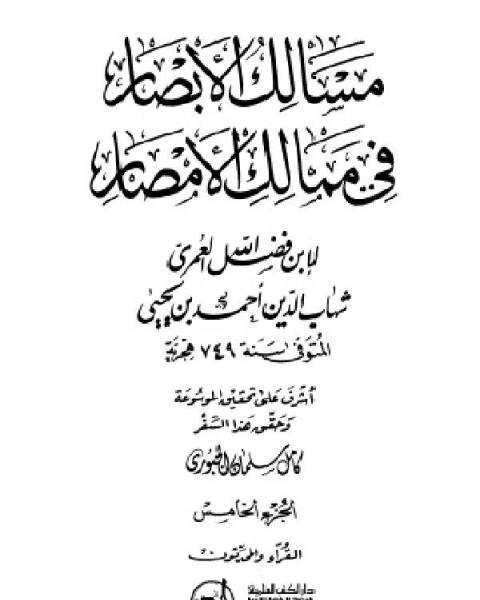 مَسَالِكُ الأَبْصَارِ
فِي مَمَالِكِ الأَمْصَارِ
لابن فضل الله العمري
شهاب الدين أحمد بن يحيى
المتوفى سنة ٧٤٩ هجرية
أشرف على تحقيق الموسوعة
وحقق هذا السفر
كامل سلمان الجبوري
الجزء الخامس
القراء والمحدثون
دار الكتب العلمية